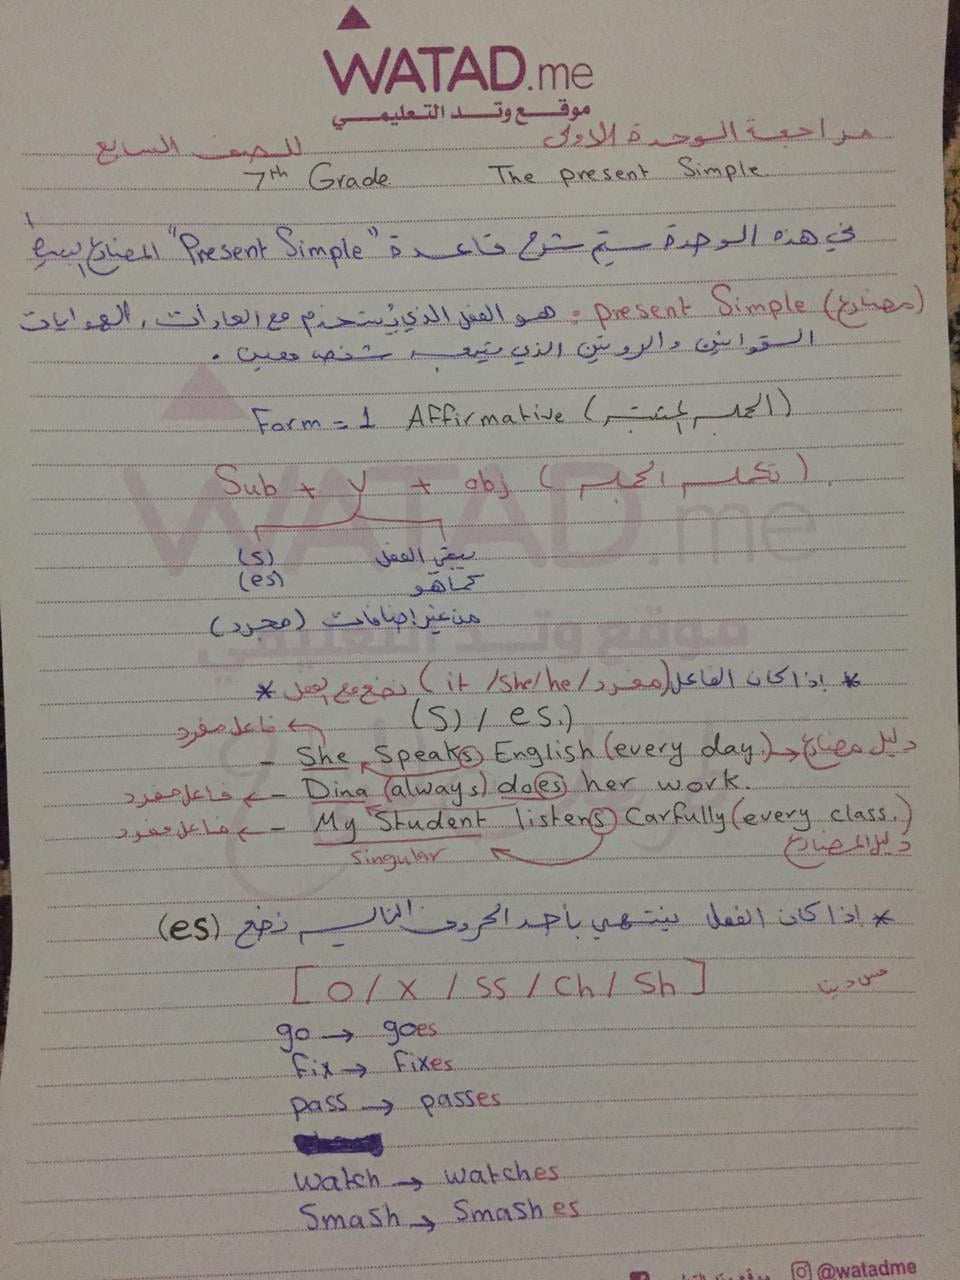 WATAD.me
موقع وتد التعليمي
مراجعة الوحدة الاولى للصف السابع
7th Grade The present Simple
في هذه الوحدة سيتم شرح قاعدة "Present Simple" المضارع البسيط
present Simple (مضارع) : هو الفعل الذي يُستخدم مع العادات , الهوايات
القوانين والروتين الذي يتبعه شخص معين .
Form = 1 Affirmative (الجملة المثبتة)
Sub + V + obj (تكملة الجملة)
(s) يبقى الفعل
(es) كما هو
من غير إضافات (مجرد)
* إذا كان الفاعل (مفرد/ it /She/he) نضع مع الفعل *
(S) / es.)
فاعل مفرد
- She Speaks English (every day.) → دليل مضارع
فاعل مفرد ← - Dina (always) does her work.
فاعل مفرد ← - My Student listens Carfully (every class.)
Singular دليل المضارع
* إذا كان الفعل ينتهي بأحد الحروف التالية نضع (es)
[ O / X / SS / Ch / Sh ] مس دينا
go → goes
fix → fixes
pass → passes
watch → watches
Smash → Smashes
WATAD.me
موقع وتد التعليمي
@watadme